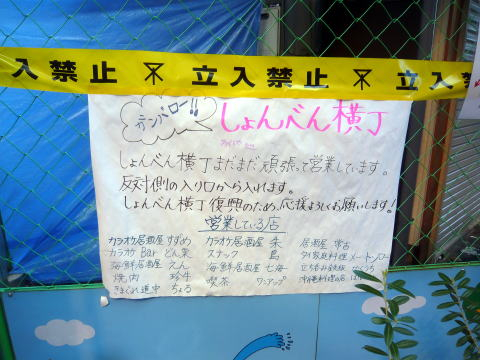 入禁止 立入禁止 立入禁
ガンバロー!!
しょんべん横丁
しょんべん横丁まだまだ頑張って営業しています。
反対側の入り口から入れます。
しょんべん横丁復興のため、応援よろしくお願いします!
営業している店
カラオケ居酒屋 すずめ カラオケ居酒屋 朱 居酒屋 常古
カラオケBar どん栗 スナック 島 タイ家庭料理 メートンロー
海鮮居酒屋 えん 海鮮居酒屋 七海 立ち呑み鉄板
焼肉 珍牛 喫茶 ワンアップ 沖縄
きまぐれ道中 ちょろ